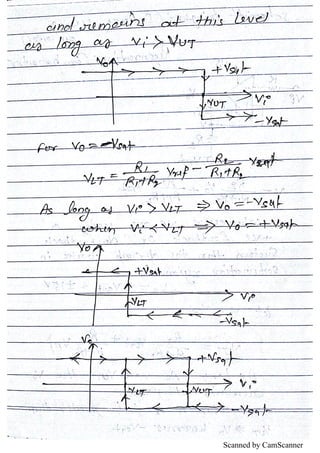 and remains at this level
as long as Vi > VUT
Vo
+Vsat
Vi
VUT
-Vsat
For Vo = -Vsat
VLT = R1/(R1+R2) Vref - R2/(R1+R2) Vsat
As long as Vi > VLT ⇒ Vo = -Vsat
when Vi < VLT ⇒ Vo = +Vsat
Vo
+Vsat
VLT
Vi
-Vsat
Vo
+Vsat
Vi
VLT VUT
-Vsat
Scanned by CamScanner